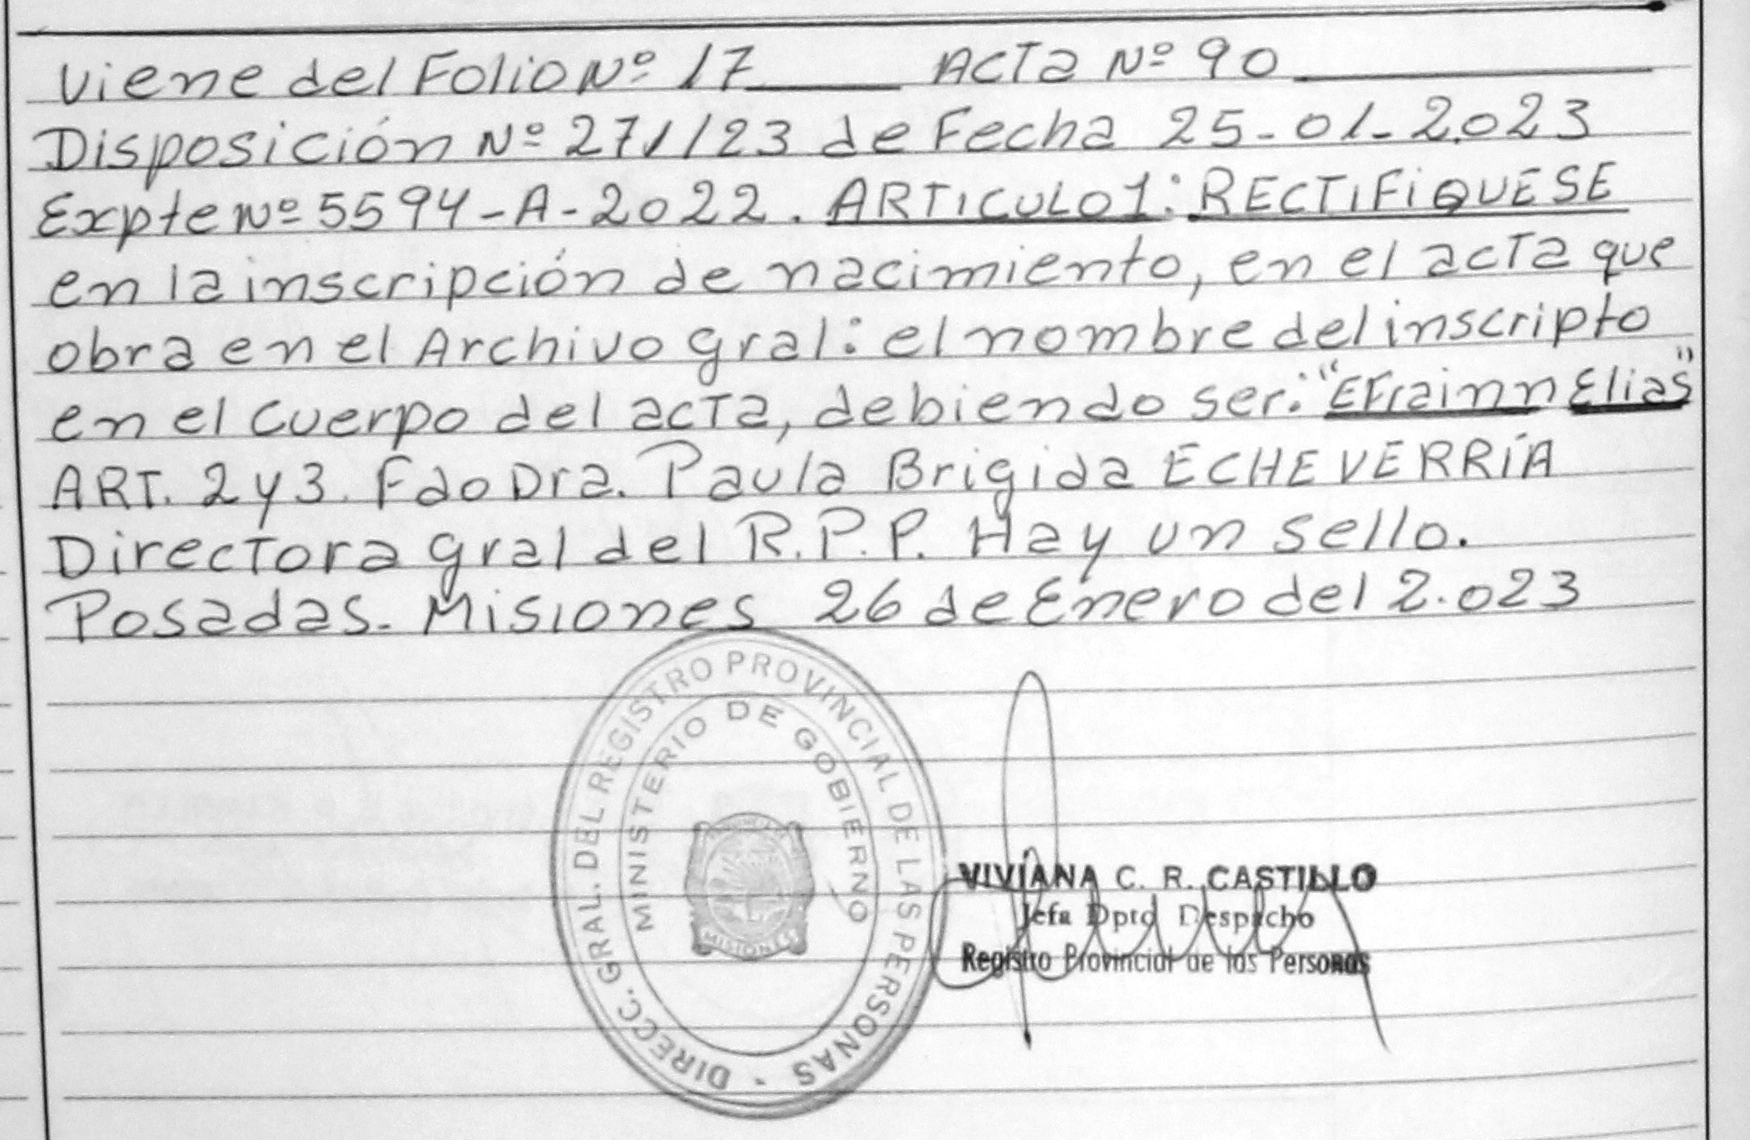 Viene del Folio Nº 17 ACTA Nº 90
Disposición Nº 271/23 de Fecha 25-01-2.023
Expte Nº 5594-A-2022. ARTICULO 1: RECTIFIQUESE
en la inscripción de nacimiento, en el acta que
obra en el Archivo gral: el nombre del inscripto
en el cuerpo del acta, debiendo ser: "EFrainn Elias"
ART. 2 y 3. Fdo Dra. Paula Brigida ECHEVERRÍA
Directora gral del R.P.P. Hay un sello.
Posadas. Misiones 26 de Enero del 2.023
DIRECC. GRAL. DEL REGISTRO PROVINCIAL DE LAS PERSONAS -
MINISTERIO DE GOBIERNO
MISIONES
VIVIANA C. R. CASTILLO
Jefa Dpto Despacho
Registro Provincial de las Personas